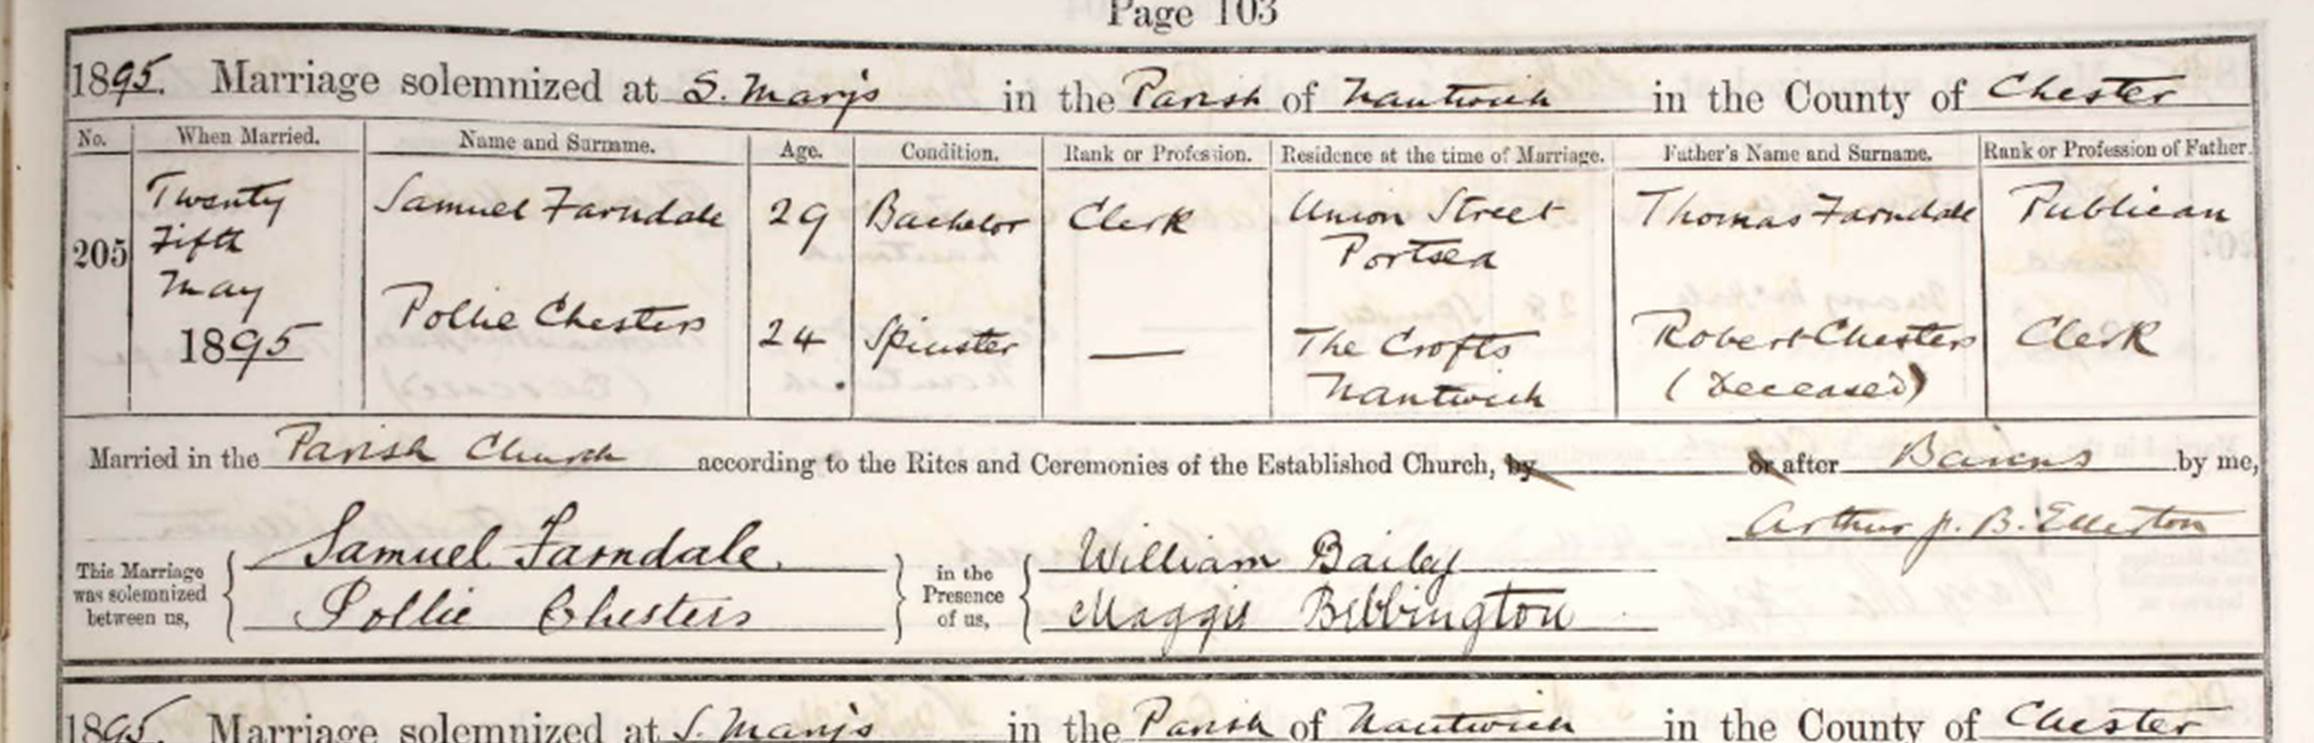 Page 103
1895. Marriage solemnized at S. Mary's in the Parish of Nantwich in the County of Chester
No. When Married. Name and Surname. Age. Condition. Rank or Profession. Residence at the time of Marriage. Father's Name and Surname. Rank or Profession of Father.
205 Twenty Fifth May 1895
Samuel Farndale 29 Bachelor Clerk Union Street Portsea Thomas Farndale Publican
Pollie Chesters 24 Spinster — The Crofts Nantwich Robert Chesters (Deceased) Clerk
Married in the Parish Church according to the Rites and Ceremonies of the Established Church, by or after Banns by me,
Arthur J. B. Ellerton
This Marriage was solemnized between us, Samuel Farndale Pollie Chesters in the Presence of us, William Bailey Maggie Bebbington
1895. Marriage solemnized at S. Mary's in the Parish of Nantwich in the County of Chester